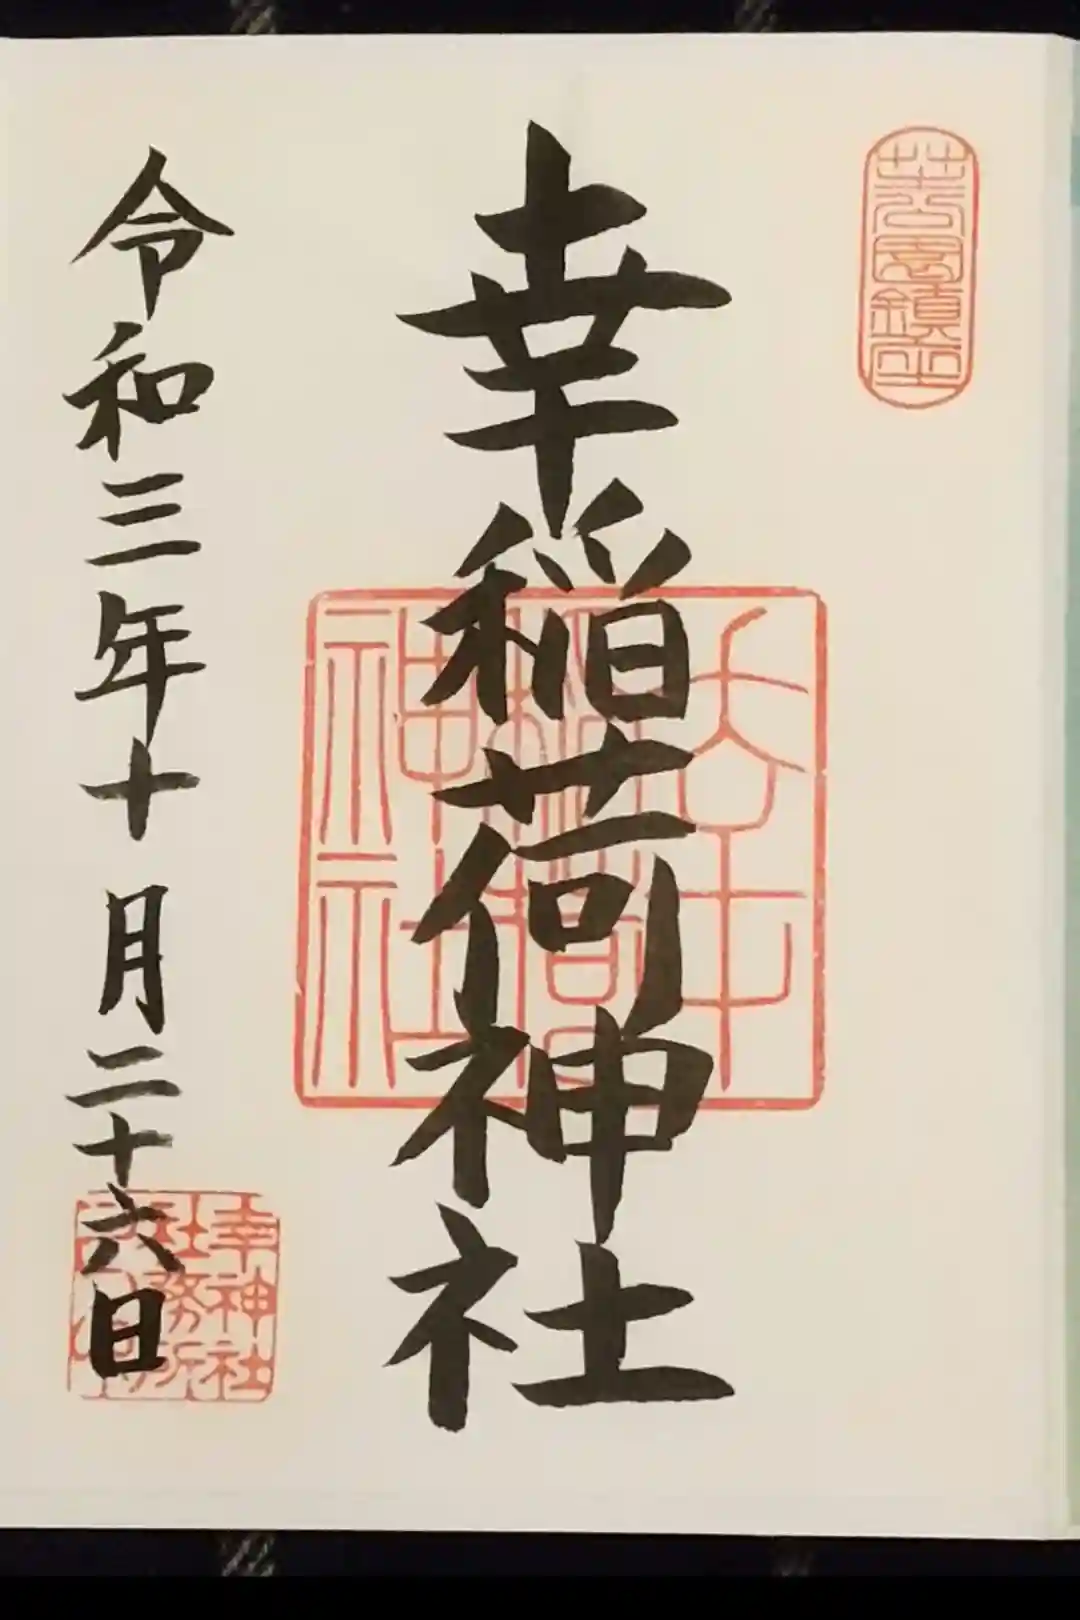 芝公園鎮座
幸稲荷神社
幸
稲荷
神社
令和三年十月二十六日
幸神社
社務所